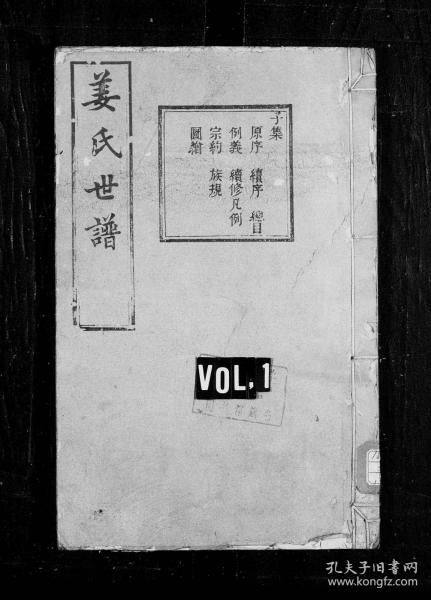 姜氏世譜
子集
原序 續序 總目
例義 續修凡例
宗約 族規
圖繪
VOL. 1
孔夫子旧书网
www.kongfz.com